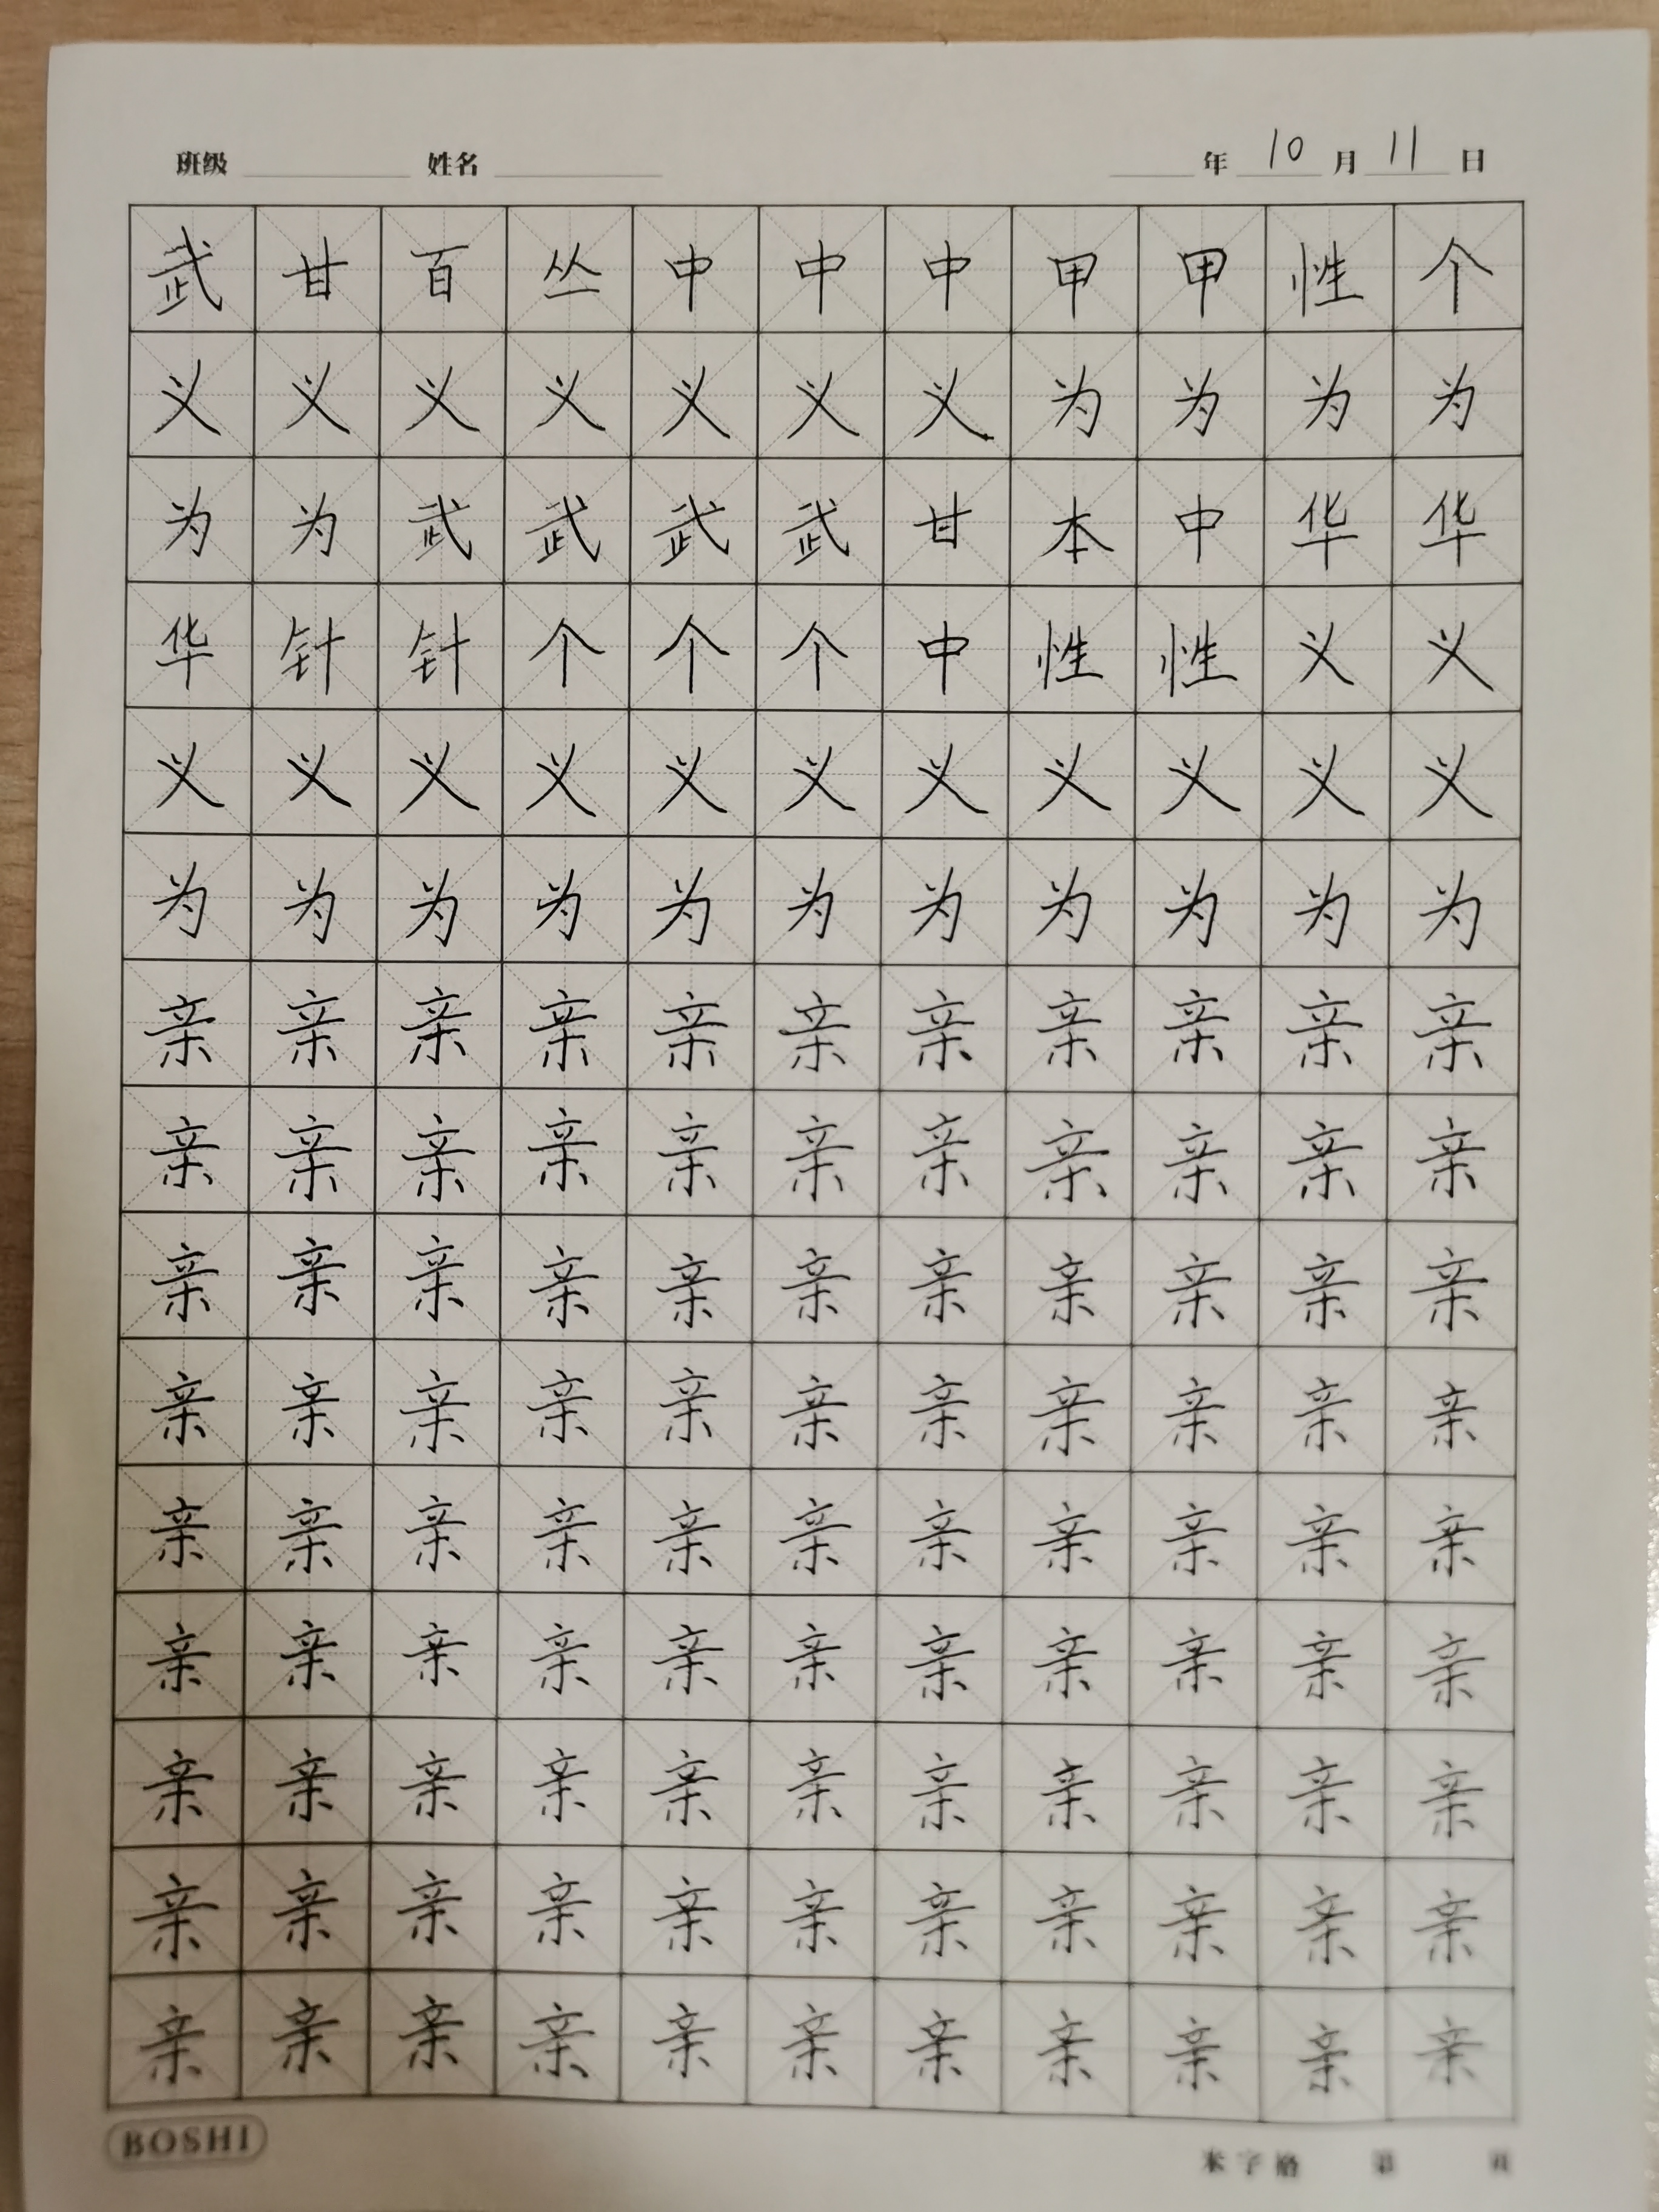 班级 姓名 年 10 月 11 日
武 甘 百 丛 中 中 中 甲 甲 性 个
义 义 义 义 义 义 义 为 为 为 为
为 为 武 武 武 武 甘 本 中 华 华
华 针 针 个 个 个 中 性 性 义 义
义 义 义 义 义 义 义 义 义 义 义
为 为 为 为 为 为 为 为 为 为 为
亲 亲 亲 亲 亲 亲 亲 亲 亲 亲 亲
亲 亲 亲 亲 亲 亲 亲 亲 亲 亲 亲
亲 亲 亲 亲 亲 亲 亲 亲 亲 亲 亲
亲 亲 亲 亲 亲 亲 亲 亲 亲 亲 亲
亲 亲 亲 亲 亲 亲 亲 亲 亲 亲 亲
亲 亲 亲 亲 亲 亲 亲 亲 亲 亲 亲
亲 亲 亲 亲 亲 亲 亲 亲 亲 亲 亲
亲 亲 亲 亲 亲 亲 亲 亲 亲 亲 亲
亲 亲 亲 亲 亲 亲 亲 亲 亲 亲 亲
BOSHI 米字格 第 页